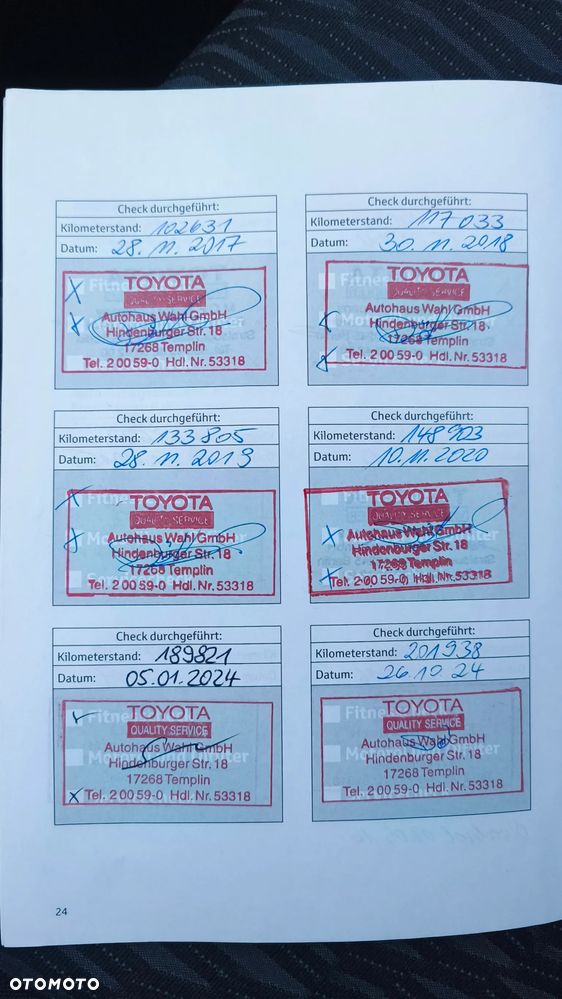 Check durchgeführt:
Kilometerstand: 102631
Datum: 28.11.2017
Fitne
TOYOTA
QUALITY SERVICE
Autohaus Wahl GmbH
Hindenburger Str. 18
17268 Templin
Tel. 2 00 59-0 Hdl. Nr. 53318
Check durchgeführt:
Kilometerstand: 117 033
Datum: 30.11.2018
Fitne
TOYOTA
QUALITY SERVICE
Autohaus Wahl GmbH
Hindenburger Str. 18
17268 Templin
Tel. 2 00 59-0 Hdl. Nr. 53318
Check durchgeführt:
Kilometerstand: 133 805
Datum: 28.11.2019
TOYOTA
QUALITY SERVICE
Autohaus Wahl GmbH
Hindenburger Str. 18
17268 Templin
Tel. 2 00 59-0 Hdl. Nr. 53318
Check durchgeführt:
Kilometerstand: 148903
Datum: 10.11.2020
TOYOTA
QUALITY SERVICE
Autohaus Wahl GmbH
Hindenburger Str. 18
17268 Templin
Tel. 2 00 59-0 Hdl. Nr. 53318
Check durchgeführt:
Kilometerstand: 189821
Datum: 05.01.2024
Fitne
TOYOTA
QUALITY SERVICE
Autohaus Wahl GmbH
Hindenburger Str. 18
17268 Templin
Tel. 2 00 59-0 Hdl. Nr. 53318
Check durchgeführt:
Kilometerstand: 201938
Datum: 26.10.24
Fitne
TOYOTA
QUALITY SERVICE
Autohaus Wahl GmbH
Hindenburger Str. 18
17268 Templin
Tel. 2 00 59-0 Hdl. Nr. 53318
24
OTOMOTO